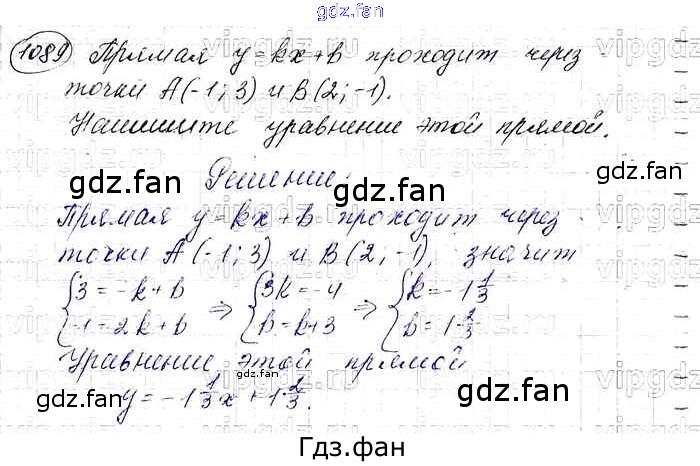 gdz.fan
1089 Прямая y=kx+b проходит через
точки A(-1;3) и B(2;-1).
Напишите уравнение этой прямой.
gdz.fan Решение: gdz.fan
Прямая y=kx+b проходит через
точки A(-1;3) и B(2;-1), значит
{3=-k+b ⇒ {3k=-4 ⇒ {k=-1 1/3
{-1=2k+b {b=k+3 {b=1 2/3
Уравнение этой прямой
gdz.fan gdz.fan gdz.fan
y=-1 1/3 x+1 2/3.
Гдз.фан